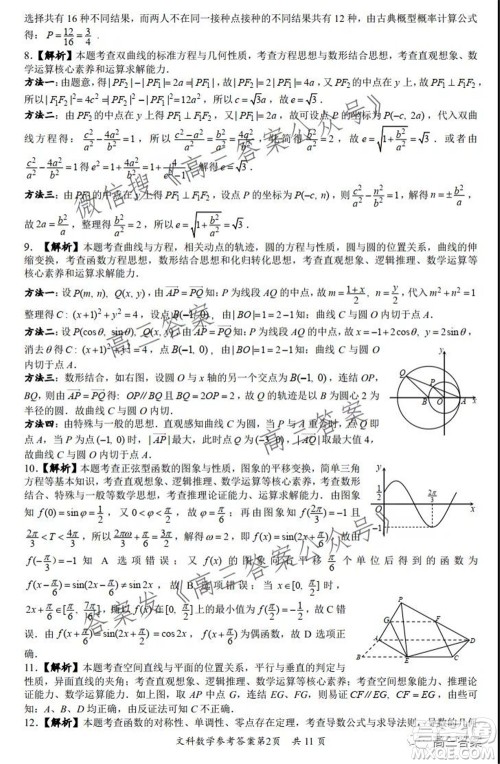 选择共有 16 种不同结果，而两人不在同一接种点接种的不同结果共有 12 种，由古典概型概率计算公式
得：P=12/16=3/4．
8．【解析】本题考查双曲线的标准方程与几何性质，考查方程思想与数形结合思想，考查直观想象、数
学运算核心素养和运算求解能力．
方法一：由题意，得|PF₂|−|PF₁|=2a=|PF₁|，故|PF₂|=2|PF₁|=4a，又PF₂的中点在y上，故PF₁⊥F₁F₂，
所以|F₁F₂|²=4c²=|PF₂|²−|PF₁|²=12a²，所以c=√3a，故e=√3．
方法二：由PF₂的中点在y上得PF₁⊥F₁F₂，又|PF₁|=2a，故可设点P的坐标为P(−c, 2a)，代入双曲
线方程得：c²/a²−4a²/b²=1，所以(c²−a²)/a²=b²/a²=4a²/b²，化简得b²/a²=2，故e=√(1+b²/a²)=√3．或者由
c²/a²−4a²/b²=1得e²=1+4a²/b²=1+4/(e²−1)，解得e=√3．
方法三：由PF₂的中点在y上得PF₁⊥F₁F₂，设点P的坐标为P(−c, n)，则c²/a²−n²/b²=1，解得n=±b²/a，
故2a=b²/a，整理得b²/a²=2，所以e=√(1+b²/a²)=√3．
9．【解析】本题考查曲线与方程，相关动点的轨迹，圆的方程与性质，圆与圆的位置关系，曲线的伸
缩变换，考查函数方程思想，数形结合思想和化归转化思想，考查直观想象、逻辑推理、数学运算等
核心素养和运算求解能力．
方法一：设P(m, n)，Q(x, y)，由AP=PQ知：P为线段AQ的中点，故m=(1+x)/2，n=y/2，代入m²+n²=1
整理得C：(x+1)²+y²=4，设点B(−1, 0)，由|BO|=1=2−1知：曲线C与圆O内切于点A．
方法二：设P(cosθ, sinθ)，Q(x, y)，由AP=PQ知：P为线段AQ的中点，故x=−1+2cosθ，y=2sinθ，
消去θ得C：(x+1)²+y²=4，点B(−1, 0)，由|BO|=1=2−1知：曲线C与圆O
内切于点A．
方法三：数形结合，如右图，设圆O与x轴的另一个交点为B(−1, 0)，连结OP，
BQ，则由AP=PQ得：OP//BQ且BQ=2OP=2，故Q的轨迹是以B为圆心2为
半径的圆．故曲线C与圆O内切于点A．
方法四：由特殊与一般的思想．直观感知曲线C与圆O，当P与A重合时，Q即
点A，当P为(−1, 0)时，|AP|最大，此时点Q为(−3, 0)，|AQ|取最大值4，
故曲线C与圆O内切于点A．
10．【解析】本题考查正弦型函数的图象与性质，图象的平移变换，简单三角
方程等基本知识，考查直观想象、逻辑推理、数学运算等核心素养，考查数形
结合、特殊与一般等数学思想，考查推理论证能力、运算求解能力．由图象
知f(0)=sinφ=1/2，又0<φ<π/2，故φ=π/6；再由图象知f(2π/3)=−1且
2π/3<T<4π/3，所以2πω/3+π/6=3π/2，解得ω=2，即f(x)=sin(2x+π/6)，故
f(−π/3)=−1知A选项错误；又f(x)的图象向右平移π/6个单位后得到的函数为
f(x−π/6)=sin(2x−π/6)≠sin2x，故B选项错误；当x∈[0, π/2]时，
2x+π/6∈[π/6, 7π/6]，f(x)在[0, π/2]上的最小值为f(π/2)=−1/2，故C错
误．由f(x+π/6)=sin(2x+π/2)=cos2x，f(x+π/6)为偶函数，故D选项正
确．
11．【解析】本题考查空间直线与平面的位置关系，平行与垂直的判定与
性质，异面直线的夹角；考查直观想象、逻辑推理等核心素养，空间想象能力、推理论
证能力、数学运算能力．如图，取AP中点G，连结EG、FG，则易证CF//EG，CF=EG，由些可
知：A、B、D均正确，由反证法可知C不正确．
12．【解析】本题考查函数的对称性、单调性、零点存在定理，考查导数公式与求导法则，导数的几何
文科数学参考答案第2页　共 11 页
微信搜《高三答案公众号》
高三答案
高三答案
答案发《高三答案公众号》
高三答案